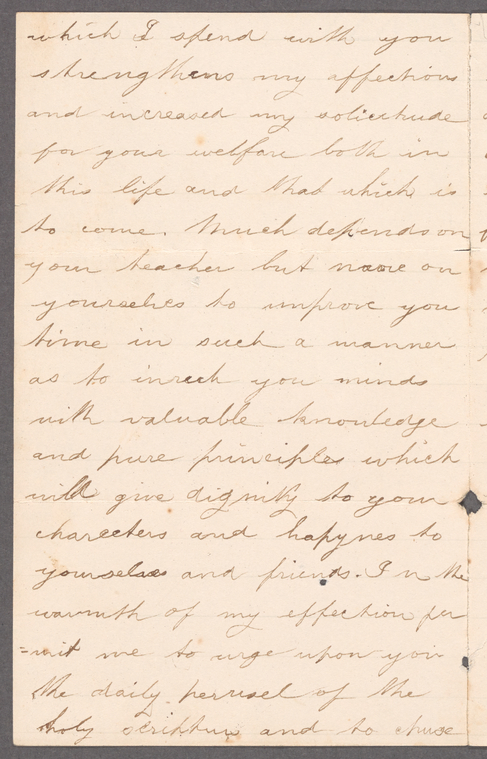 which I spend with you
strengthens my affections
and increased my solicitude
for your welfare both in
this life and that which is
to come. Much depends on
your teacher but more on
yourselves to improve you
time in such a manner
as to inrich you minds
with valuable knowledge
and pure principles which
will give dignity to your
charecters and hapynes to
yourselves and friends. In the
warmth of my effection per
=mit me to urge upon you
the daily perusel of the
holy scripture and to chuse